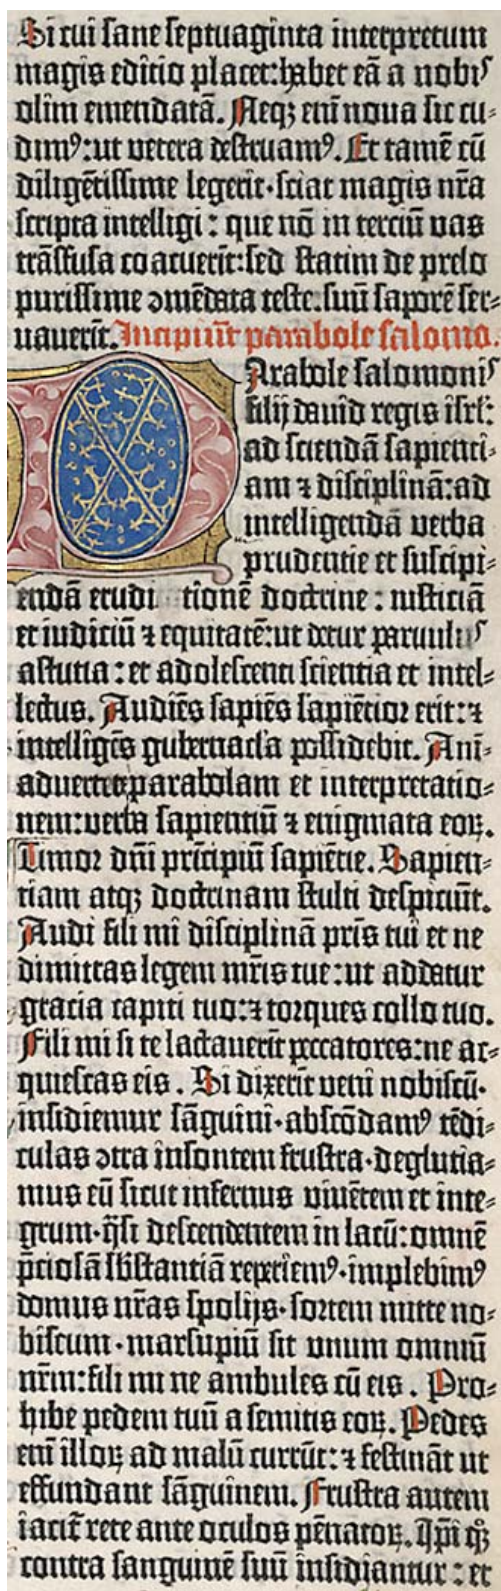 Si cui sane septuaginta interpretum
magis editio placet: habet eā a nobis
olim emendatā. Neqꝫ enī noua sic cu-
dimꝰ: ut vetera destruamꝰ. Et tamē cū
diligētissime legerit· sciat magis nr̄a
scripta intelligi: que nō in terciū vas
trāsfusa coacuerīt: sed statim de prelo
purissime ꝯmēdata teste: suū saporē ser-
uauerīt. Incipiūt parabole salomo.
Parabole salomonis
filij dauid regis isrl̄:
ad sciendā sapienti-
am ⁊ disciplinā: ad
intelligendā verba
prudentie et suscipi-
endā eruditionē doctrine: iusticiā
et iudiciū ⁊ equitatē: ut detur paruulis
astutia: et adolescenti scientia et intel-
lectus. Audiēs sapiēs sapiētior erit: ⁊
intelligēs gubernacla possidebit. Ani-
aduertet parabolam et interpretatio-
nem: verba sapientiū ⁊ enigmata eoꝝ.
Timor dn̄i prīcipiū sapiētie. Sapien-
tiam atqꝫ doctrinam stulti despiciūt.
Audi fili mi disciplinā pr̄is tui et ne
dimittas legem mr̄is tue: ut addatur
gracia capiti tuo: ⁊ torques collo tuo.
Fili mi si te lactauerīt peccatores: ne ac-
quiescas eis. Si dixerīt veni nobiscū·
insidiemur sāguini· abscōdamꝰ tēdi-
culas ꝯtra insontem frustra· deglutia-
mus eū sicut infernus viuētem et inte-
grum· q̄si descendentem in lacū: omnē
p̄ciosā sb̄stantiā reperiemꝰ· implebimꝰ
domus nr̄as spolijs· sortem mitte no-
biscum· marsupiū sit unum omniū
nr̄m: fili mi ne ambules cū eis. Pro-
hibe pedem tuū a semitis eoꝝ. Pedes
enī illoꝝ ad malū currūt: ⁊ festināt ut
effundant sāguinem. Frustra autem
iacit᷑ rete ante oculos pēnatoꝝ. Ip̄i qꝫ
contra sanguinē suū insidiantur: et